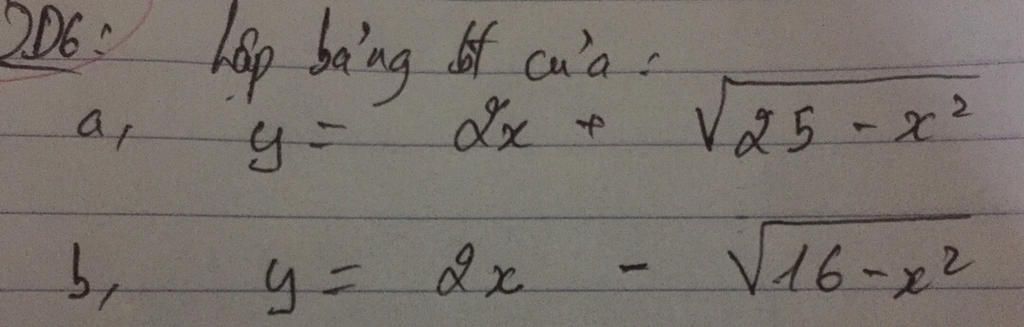 VD6: Lập bảng bt của:
a, y = 2x + √25 - x²
b, y = 2x - √16 - x²